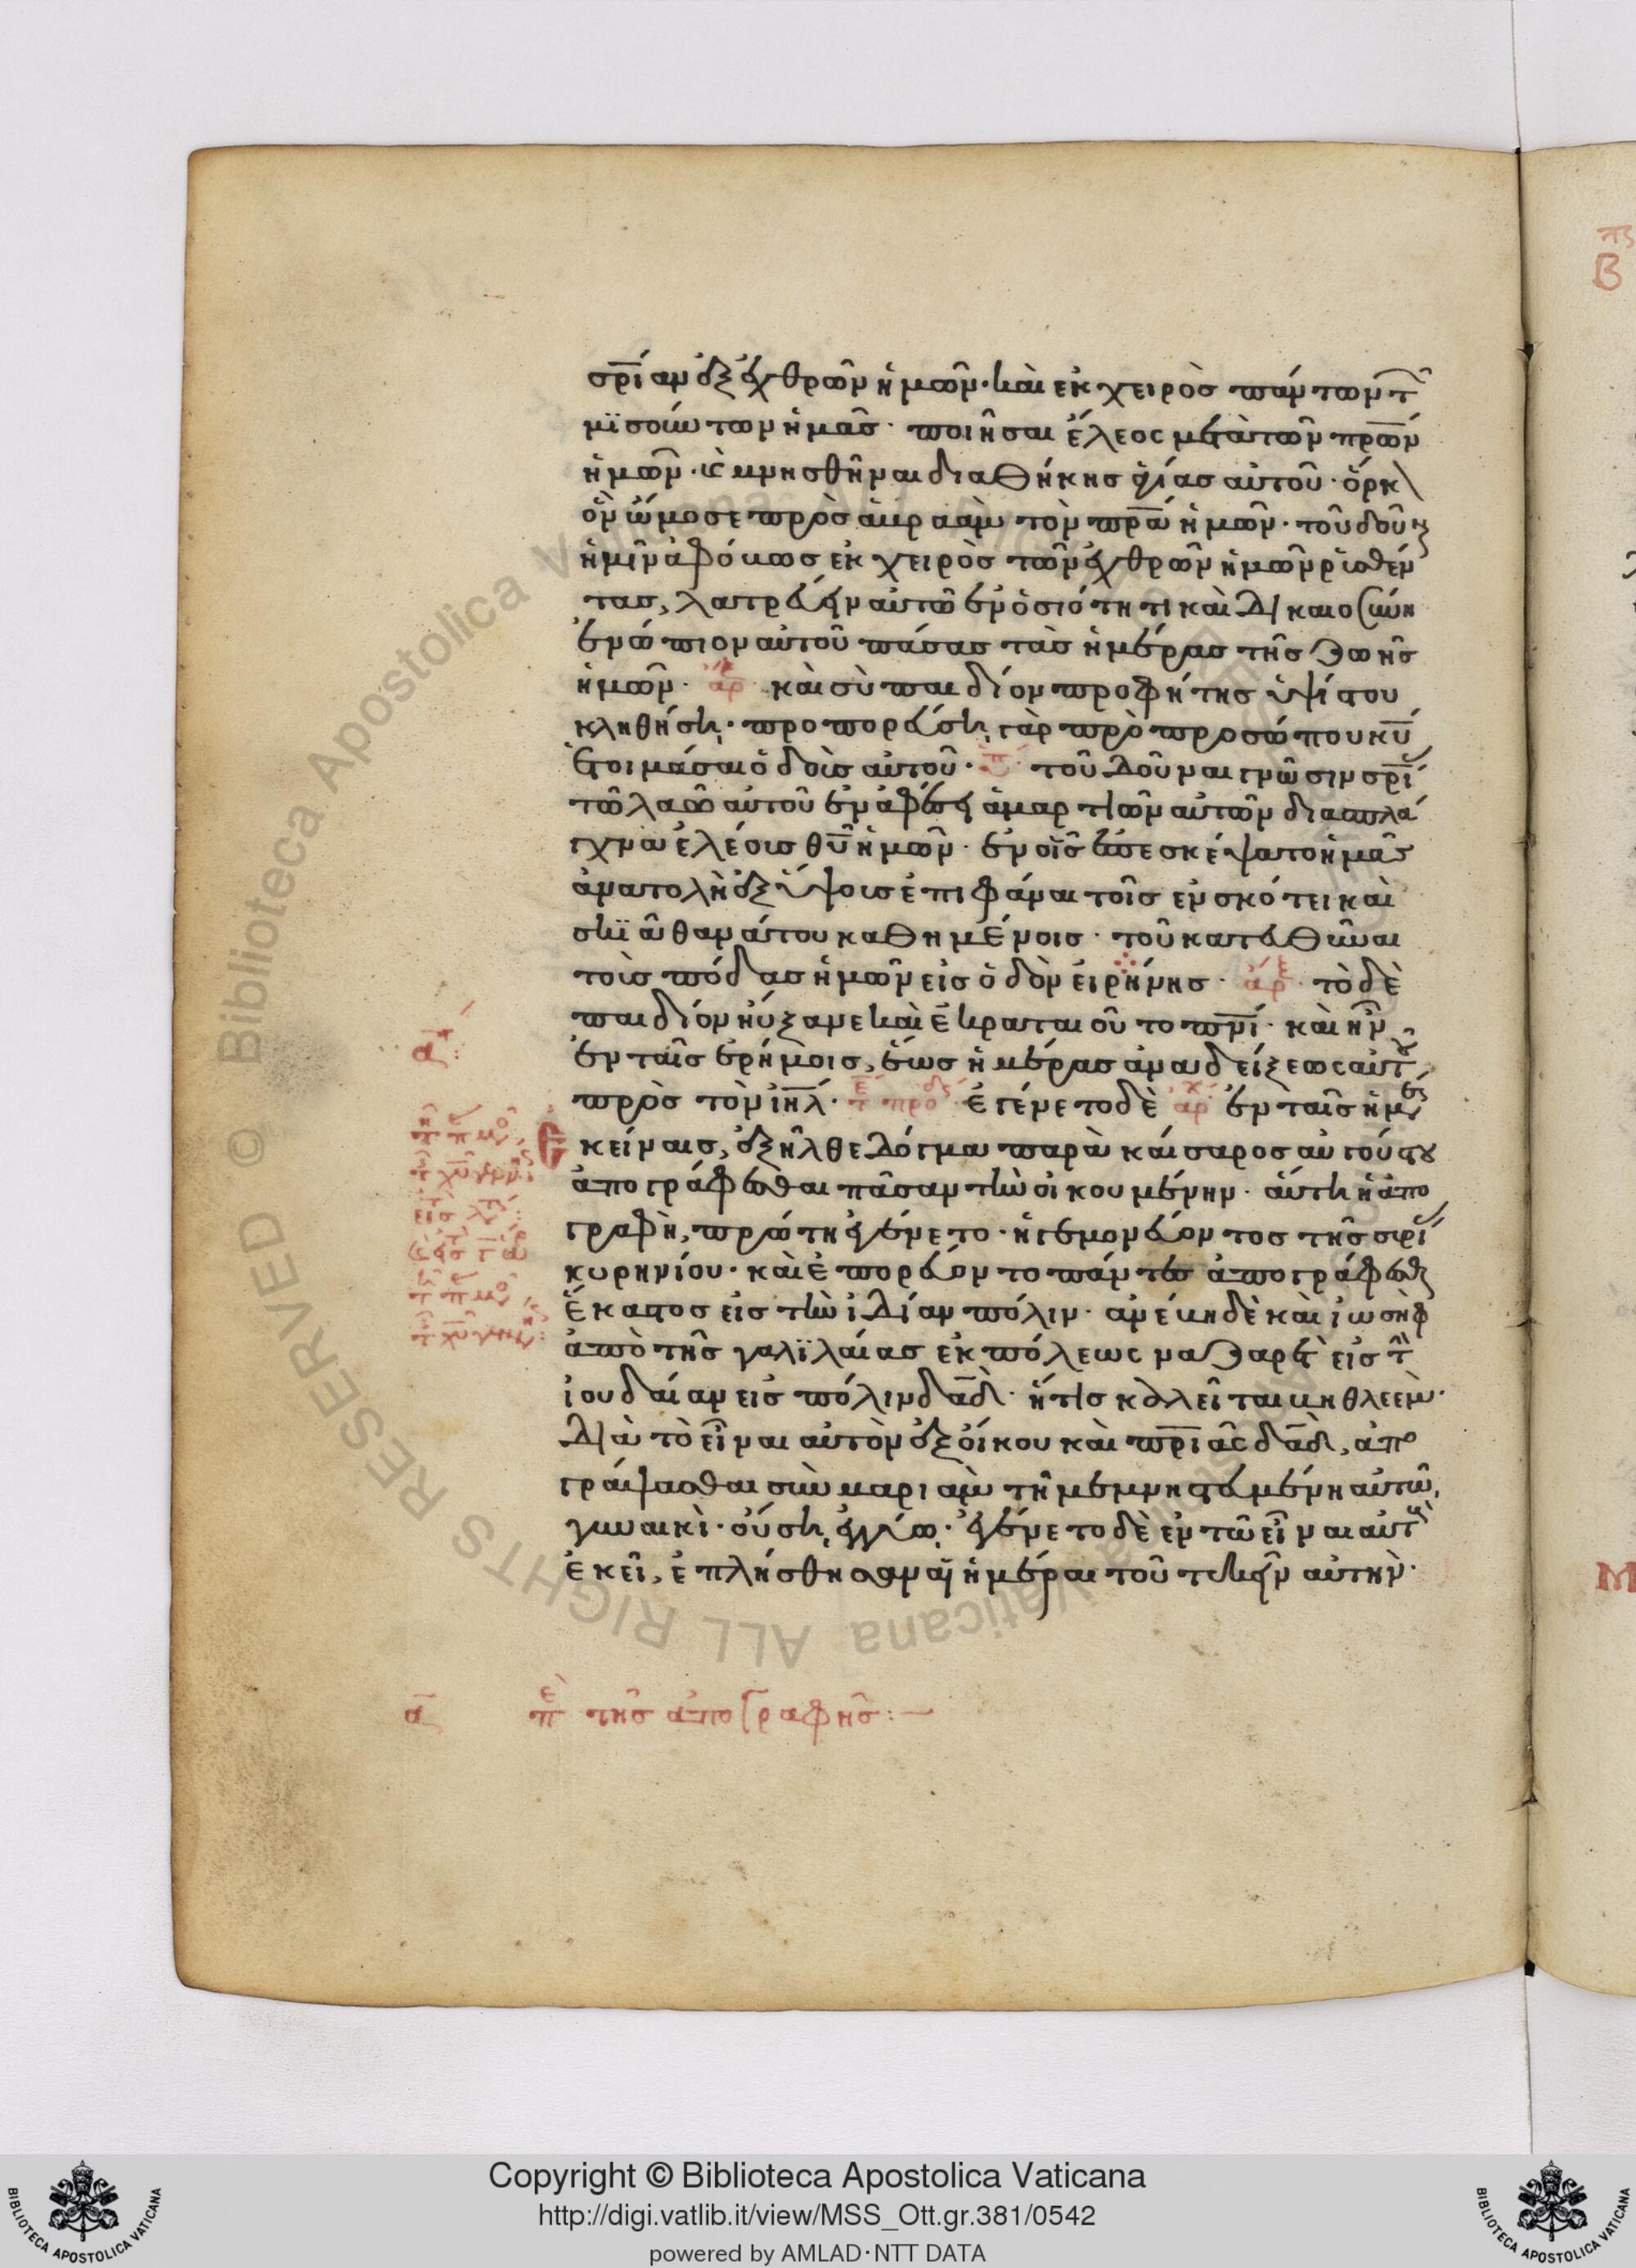 σρ̅ίαν ἐξ ἐχθρῶν ἡμῶν· καὶ ἐκ χειρὸσ πάντων τ
μϊσούντων ἡμᾶσ· ποιῆσαι ἔλεος μετὰ τῶν πρ̅ων
ἡμῶν· καὶ μνησθῆναι διαθήκησ ἁγίασ αὐτοῦ· ὅρκ
ὃν ὤμοσε πρὸσ ἀβρααμ τὸν πρ̅α ἡμῶν· τοῦ δοῦναι
ἡμῖν ἀφόβωσ ἐκ χειρὸσ τῶν ἐχθρῶν ἡμῶν ῥυσθέν
τασ, λατρεύειν αὐτῶ ἐν ὁσιότητι καὶ δικαιοσύνη
ἐνώπιον αὐτοῦ πάσασ τὰσ ἡμέρασ τῆσ ζωῆσ
ἡμῶν· ἀρ καὶ σὺ παιδίον προφήτησ ὑψίστου
κληθήση· προπορεύση γὰρ πρὸ προσώπου κυ̅
ἑτοιμάσαι ὁδοὺσ αὐτοῦ· τοῦ δοῦναι γνῶσιν σρ̅ί
τῶ λαῶ αὐτοῦ ἐν ἀφέσει ἁμαρτιῶν αὐτῶν διασπλά
γχνα ἐλέουσ θυ̅ ἡμῶν· ἐν οἷσ ἐπεσκέψατο ἡμᾶσ
ἀνατολὴ ἐξ ὕψουσ ἐπιφάναι τοῖσ ἐν σκότει καὶ
σκιᾶ θανάτου καθημένοισ· τοῦ κατευθῦναι
τοὺσ πόδασ ἡμῶν εἰσ ὁδὸν εἰρήνησ· ἀρ τὸ δὲ
παιδίον ηὔξανε καὶ ἐκραταιοῦτο πν̅ι· καὶ ἦν
α̅
ἐν ταῖσ ἐρήμοισ, ἕωσ ἡμέρασ ἀναδείξεωσ αὐτ
πρὸσ τὸν ἰηλ̅· ἐγένετο δὲ ἀρ ἐν ταῖσ ἡμ
ἐκείναισ, ἐξῆλθε δόγμα παρὰ καίσαροσ αὐγούστου
ἀπογράφεσθαι πᾶσαν τὴν οἰκουμένην· αὕτη ἡ ἀπο
γραφὴ, πρώτη ἐγένετο· ἡγεμονεύοντοσ τῆσ συρί
κυρηνίου· καὶ ἐπορεύοντο πάντεσ ἀπογράφεσθαι
ἕκαστοσ εἰσ τὴν ἰδίαν πόλιν· ἀνέβη δὲ καὶ ἰωσὴφ
ἀπὸ τῆσ γαλϊλαίασ ἐκ πόλεωσ ναζαρὲτ εἰσ τ
ἰουδαίαν εἰσ πόλιν δαδ̅· ἥτισ καλεῖται βηθλεεμ·
διὰ τὸ εἶναι αὐτὸν ἐξ οἴκου καὶ πρ̅ιᾶσ δαδ̅, ἀπο
γράψασθαι σὺν μαριὰμ τῆ μεμνηστευμένη αὐτῶ,
γυναικὶ· οὔση ἐγγύω· ἐγένετο δὲ ἐν τῶ εἶναι αὐτ
ἐκεῖ, ἐπλήσθησαν αἱ ἡμέραι τοῦ τεκεῖν αὐτὴν·
α̅ πε τῆσ ἀπογραφῆσ:—
Copyright © Biblioteca Apostolica Vaticana
http://digi.vatlib.it/view/MSS_Ott.gr.381/0542
powered by AMLAD·NTT DATA
BIBLIOTECA APOSTOLICA VATICANA
BIBLIOTECA APOSTOLICA VATICANA